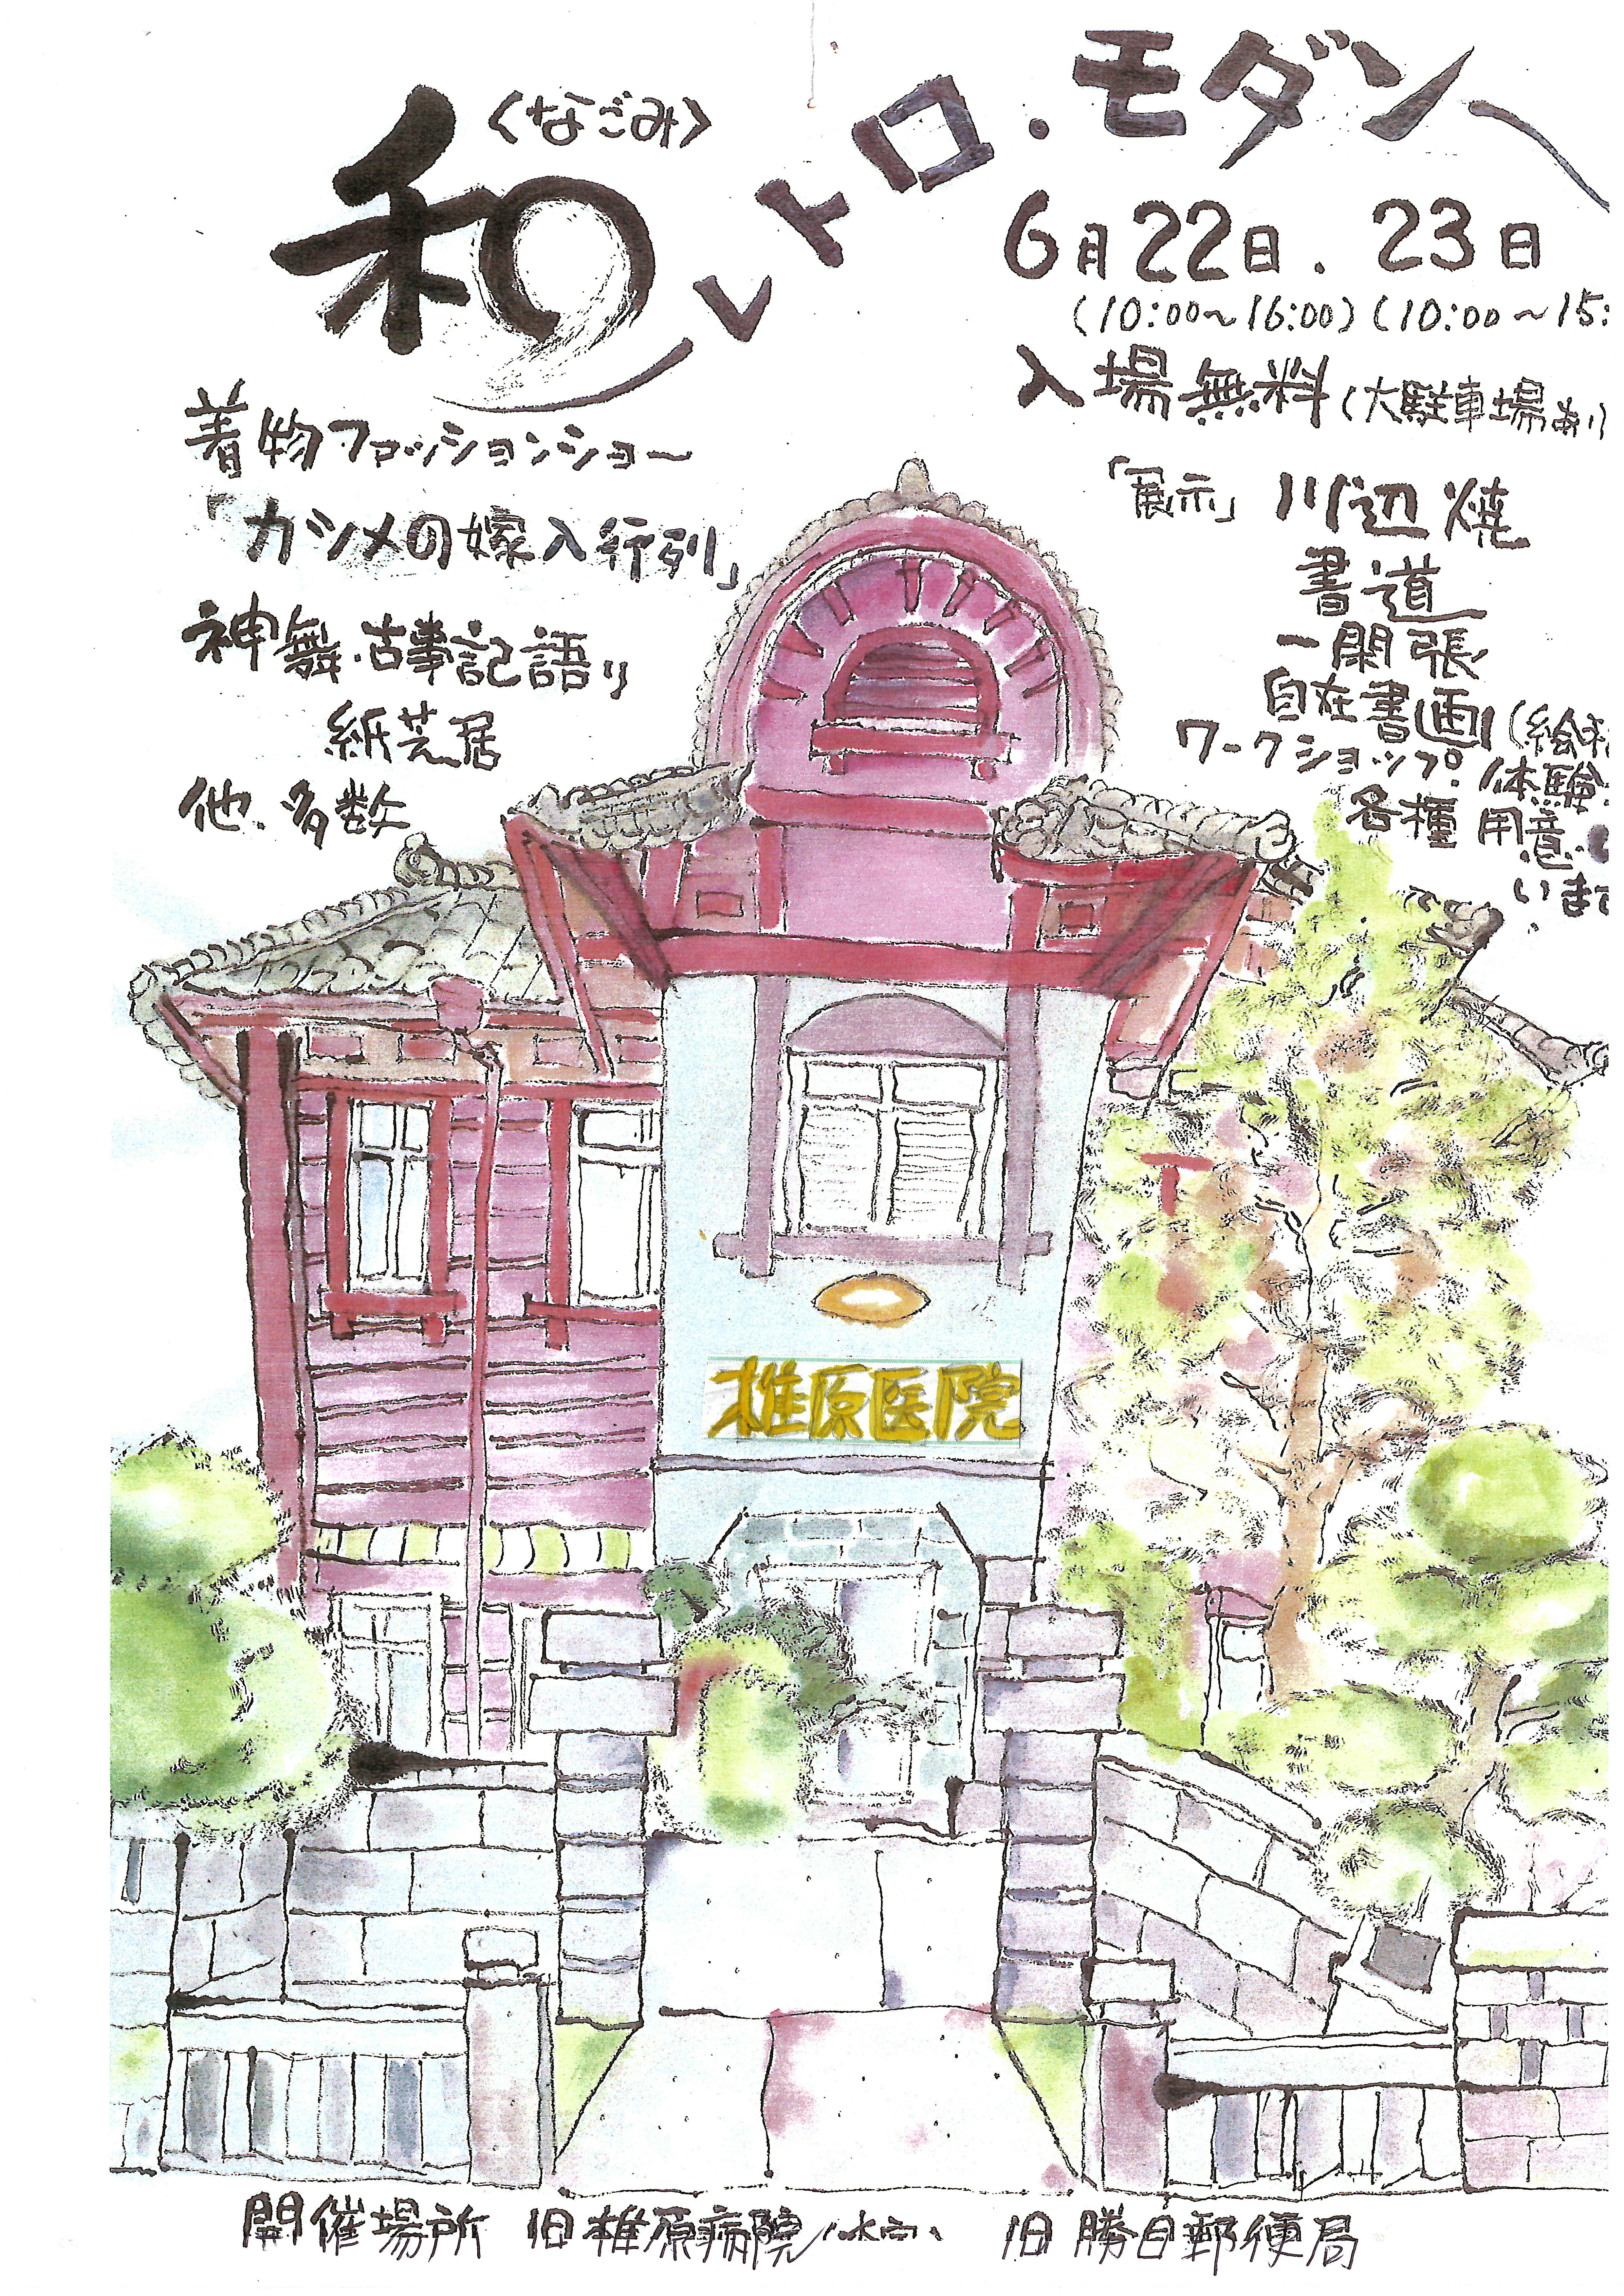 和
〈なごみ〉
レトロ・モダン
6月22日・23日
(10:00〜16:00)(10:00〜15:
入場無料(大駐車場あり
着物ファッションショー
「カシメの嫁入行列」
神舞・古事記語り
紙芝居
他、多数
「展示」川辺焼
書道
一閑張
自在書画(絵
ワークショップ。体験
各種用意
いま
椎原医院
開催場所 旧椎原病院 旧勝目郵便局